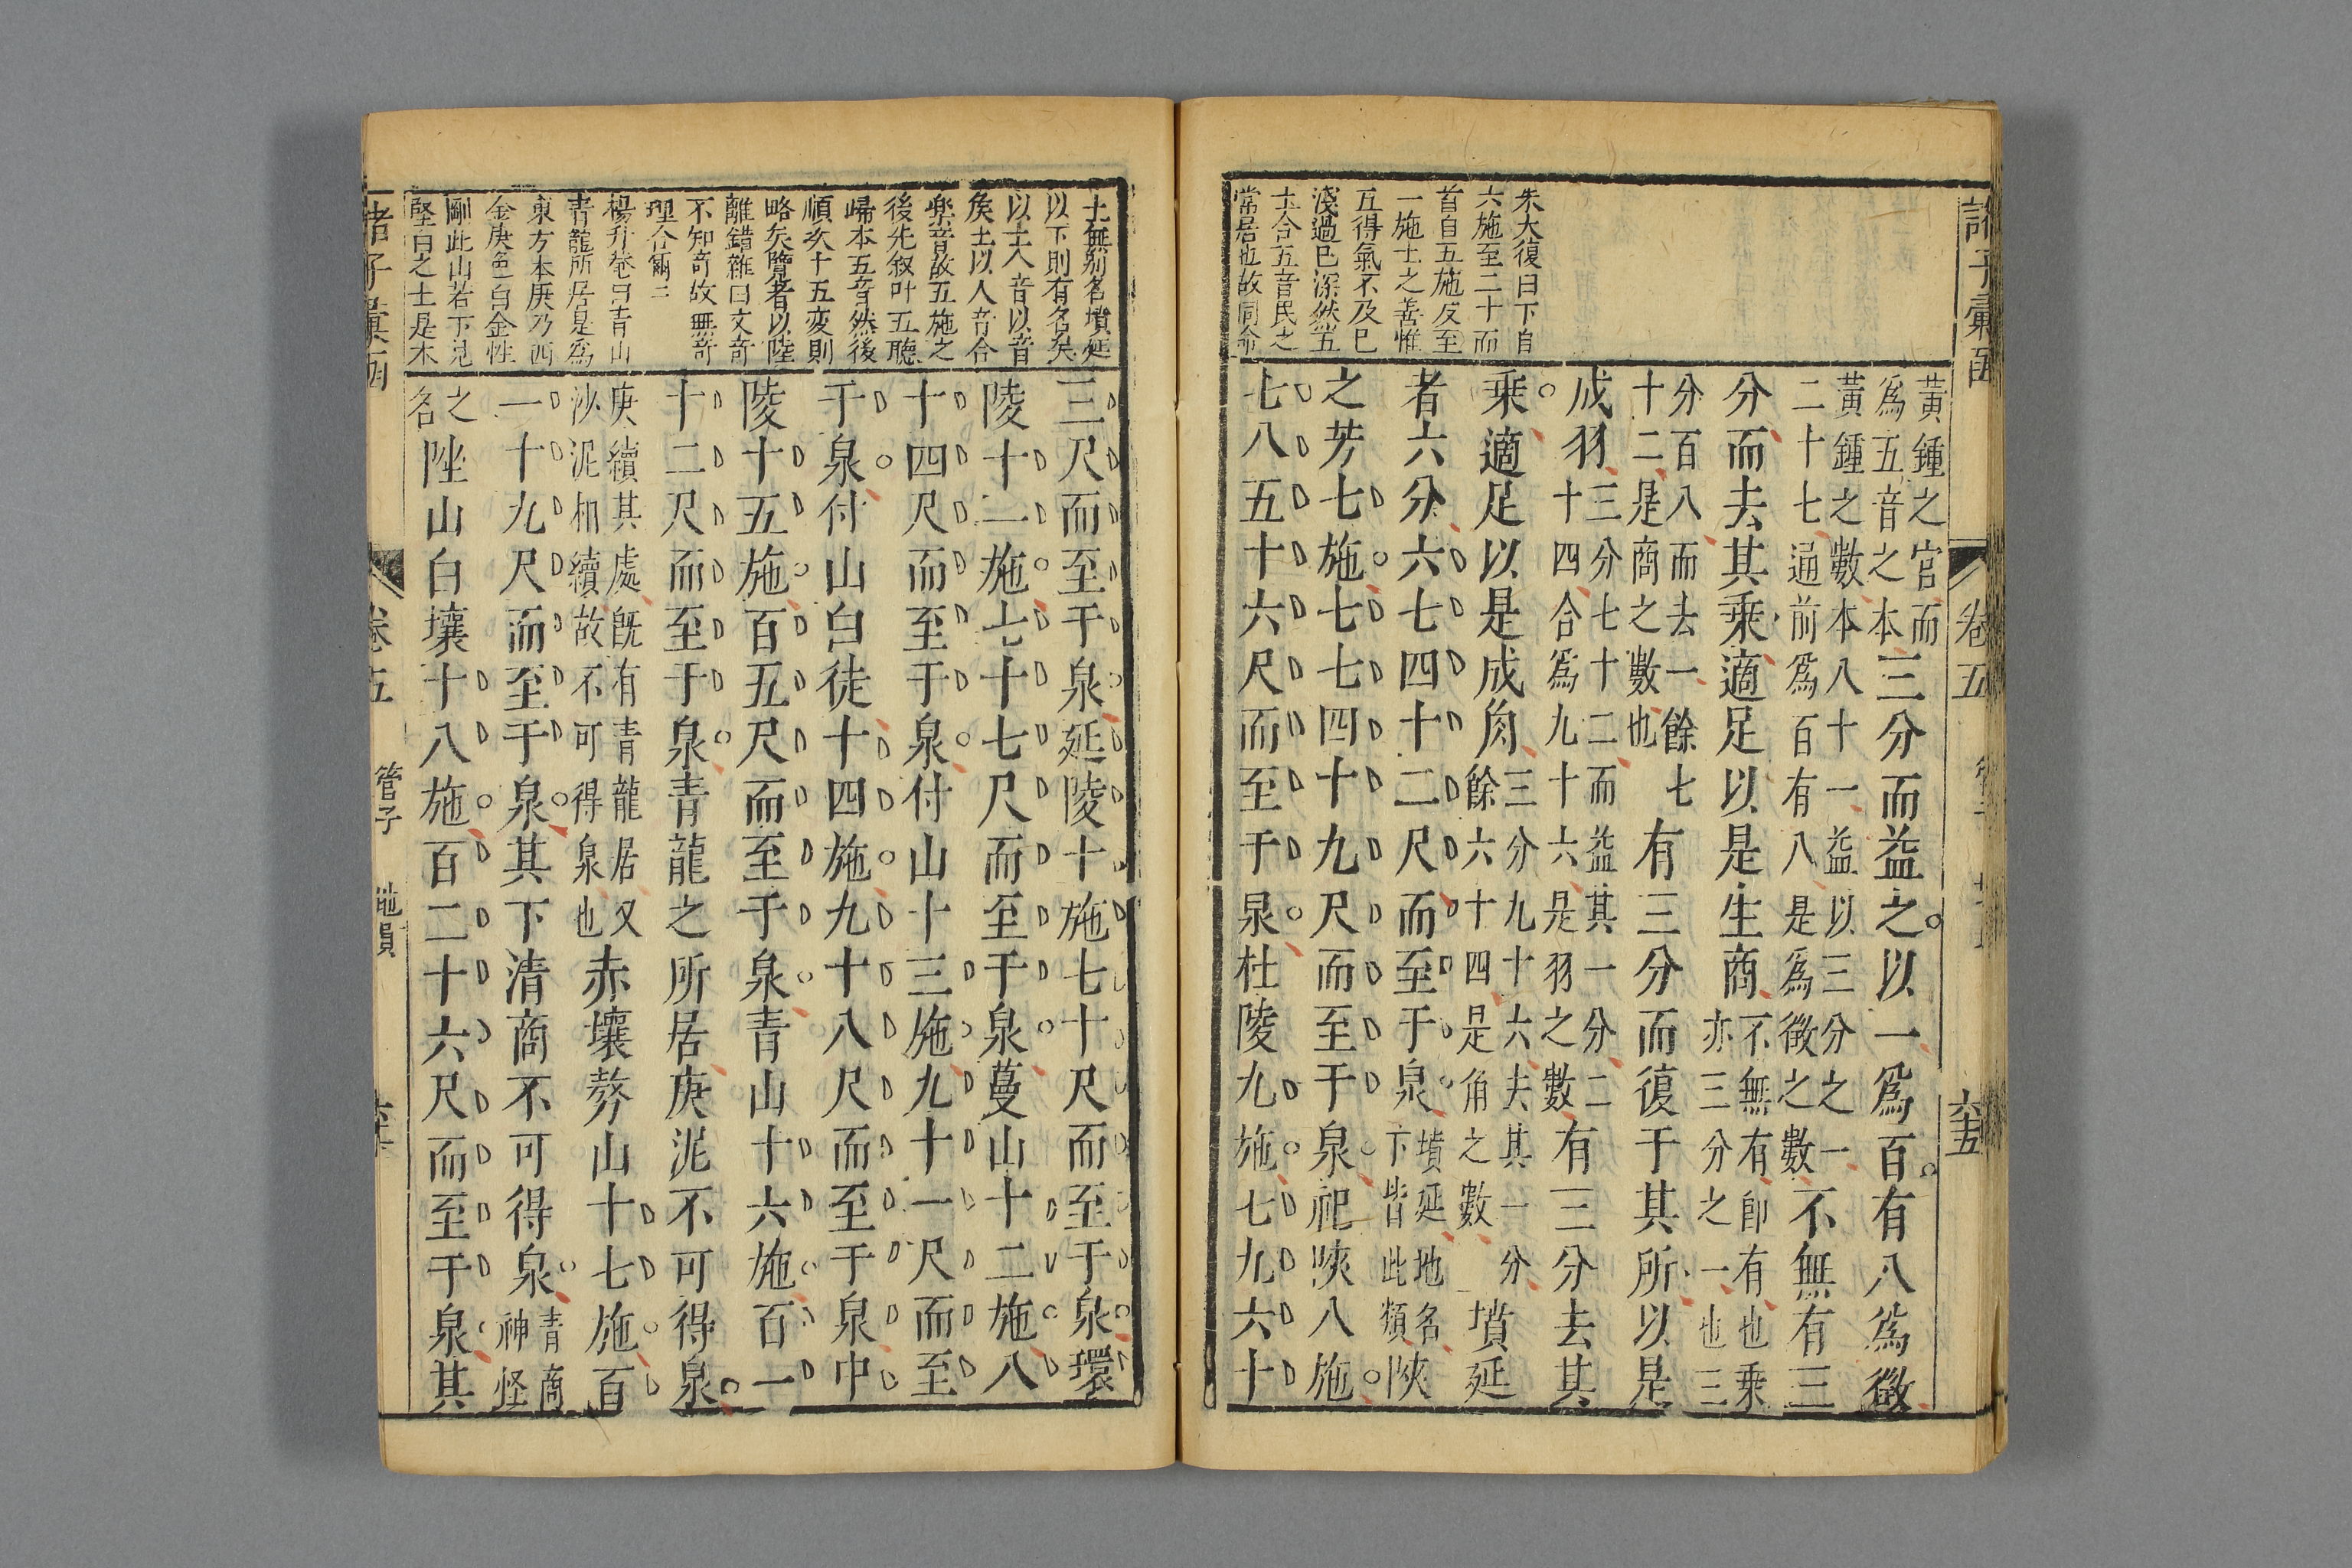 諸子彙函 卷五 管子 六十五
朱大復曰下自
六施至二十而
首自五施反至
一施土之善惟
五得氣不及已
淺過已深然五
土合五音民之
常居也故同命
黃鍾之宮而爲五音之本三分而益之以一爲百有八爲徵
黃鍾之數本八十一益以三分之一二十七通前爲百有八是爲徵之數不無有三
分而去其乘適足以是生商不無有卽有也乘亦三分之一也三
分百八而去一餘七十二是商之數也有三分而復于其所以是
成羽三分七十二而益其一分二十四合爲九十六是羽之數有三分去其
乘適足以是成角三分九十六去其一分餘六十四是角之數墳延
者六分六七四十二尺而至于泉墳延地名下皆此類陜
之芳七施七七四十九尺而至于泉祀陜八施
七八五十六尺而至于泉杜陵九施七九六十
土無別名墳延
以下則有名矣
以土人音以音
矣土以人音合
樂音故五施之
後先叙叶五聽
歸本五音然後
順次十五変則
略矣覽者以陸
離錯雜曰文奇
不知奇故無奇
理合爾
楊升菴曰青山
青龍所居是爲
東方本庚乃西
金庚色白金性
剛此山若下見
堅白之土是木
三尺而至于泉延陵十施七十尺而至于泉環
陵十一施七十七尺而至于泉蔓山十二施八
十四尺而至于泉付山十三施九十一尺而至
于泉付山白徒十四施九十八尺而至于泉中
陵十五施百五尺而至于泉青山十六施百一
十二尺而至于泉青龍之所居庚泥不可得泉
庚續其處旣有青龍居又沙泥相續故不可得泉也赤壤㔟山十七施百
一十九尺而至于泉其下清商不可得泉青商神怪
之名陞山白壤十八施百二十六尺而至于泉其
諸子彙函 卷五 管子 地員